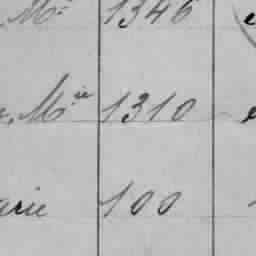 M.e 1346
Mie 1310
arie 100